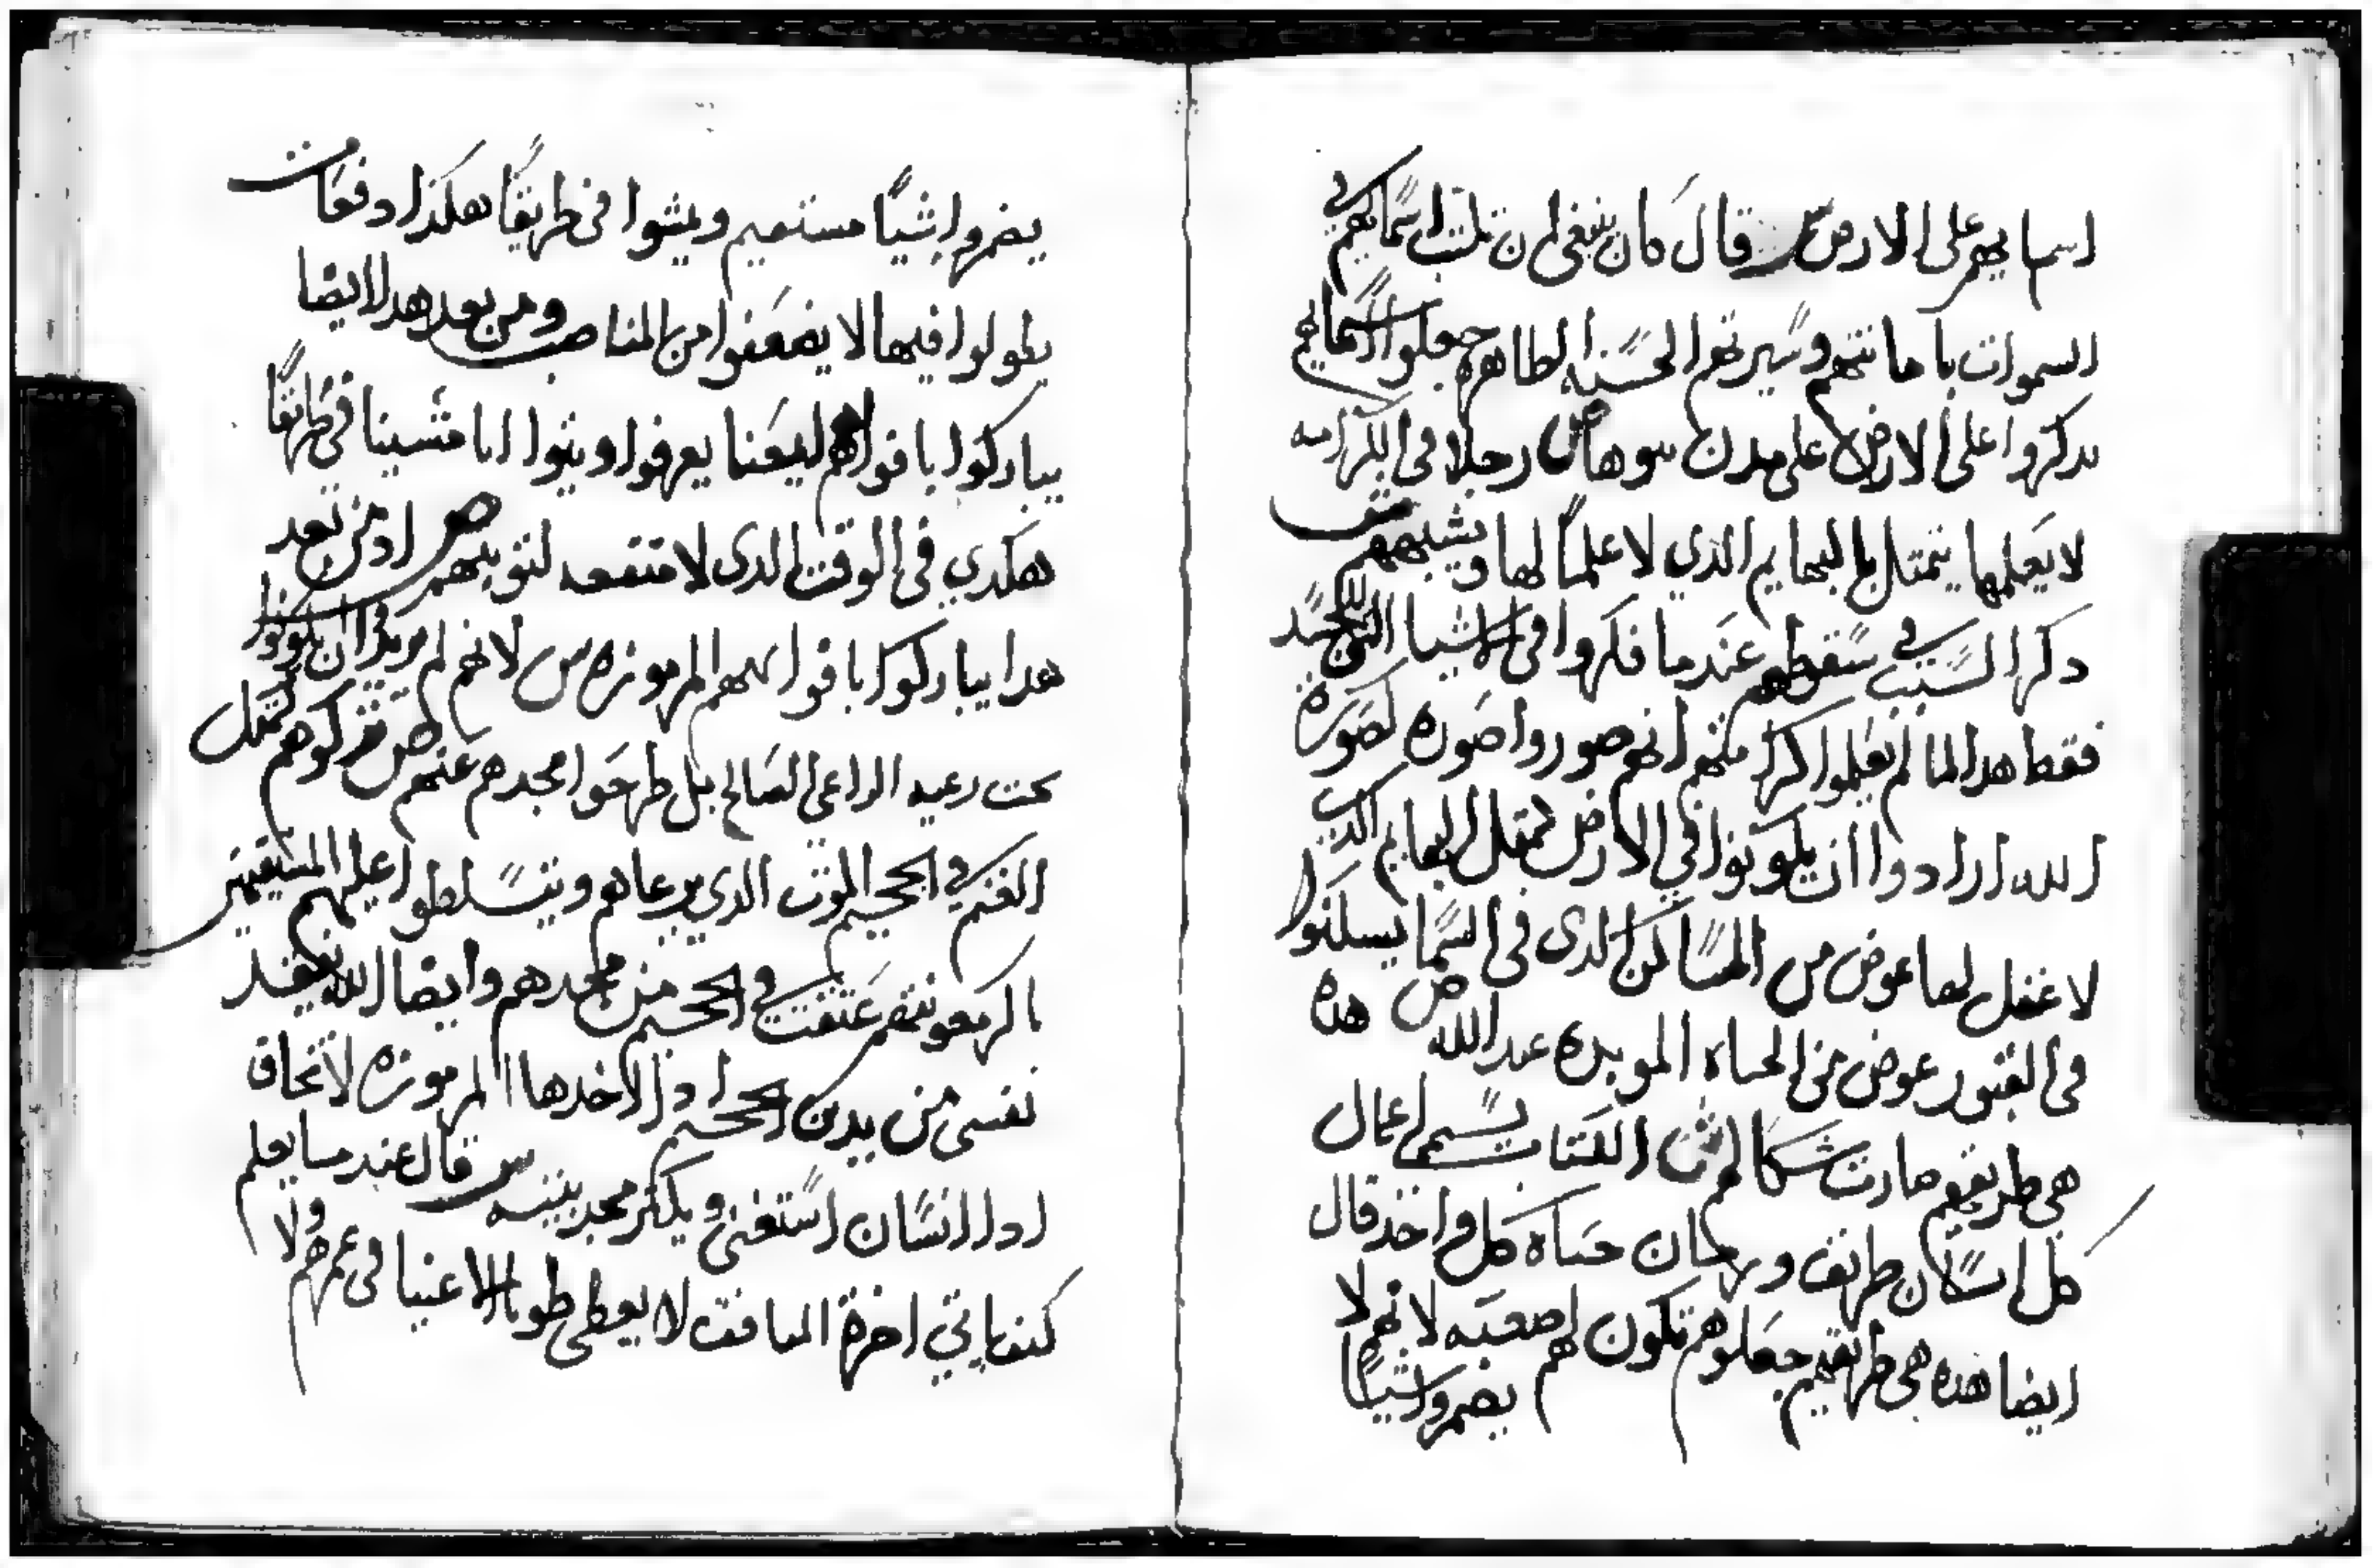 اسمايهم على الارض س قال كان ينبغي ان تكتب اسمايهم في
السموات باماناتهم وسيرتهم الحسنه الطاهره جعلوا اسمايهم
يدكروا على الارض على مدن سوها ص رجلا في الكرامه
لا يعلمها يتمتل بالبهايم الذي لا علمًا لها ويشبههم
دكر السبب في سقوطهم عندما فكروا في الاشيا التي للجسد
فقط هدا لما لم يعلموا كرامتهم انهم صوروا صوره كصورة
الله ارادوا ان يكونوا في الارض كمتل البهايم الدي
لا عقل لها عوض من المساكن الدى في السما يسكنوا
في القبور عوض من الحياه الموبده عند الله ص هده
هي طريقهم صارت شكا لهم الكتاب يسمي اعمال
كل انسان طريق وبرهان حياه كل واحد قال
ايضا هده هي طريقهم جعلوهم تكون لهم صعبه لانهم لا
يضمروا شيًا
يضمروا شيًا مستقيم ويمشوا في طريقًا هكذا دفعات
يطولوا فيها لا يضعفوا من المناصب ومن بعد هدا ايضا
يباركوا بافواههم ليعنا يعرفوا ويتوا انا مشينا في طريقًا
هكدي في الوقت الدي لا منفعه لتوبتهم ص اد من بعد
هدا يباركوا بافواههم المرموزه س لانهم لم يريدوا ان يكونوا
تحت رعيه الراعي الصالح بل طرحوا مجدهم عنهم ص تركوهم كمتل
الغنم في الجحيم الموت الدي يرعاهم ويتسلطوا عليهم المستقيمين
بالرمعونتهم عتقت في الجحيم من مجدهم وايضا الله ينقد
نفسى من يدين الجحيم ادا اخدها المرموزه لا تخاف
ادا انسان استغنى ويكتر مجد بيته س قال عندما يعلم
كيف ياتي اخرة المنافق لا يعطي طوبا للاغنيا في عمرهم ولا